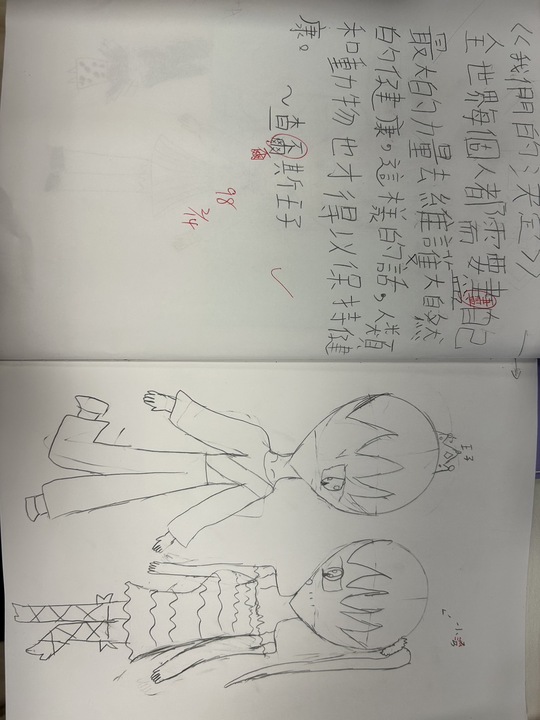 《我們的決定》
全世界每個人都需要盡自己
最大的力量去維護大自然
的健康，這樣的話，人類
和動物也才得以保持健
康。
~查爾斯王子
爾
98
2/14
王子
小湾